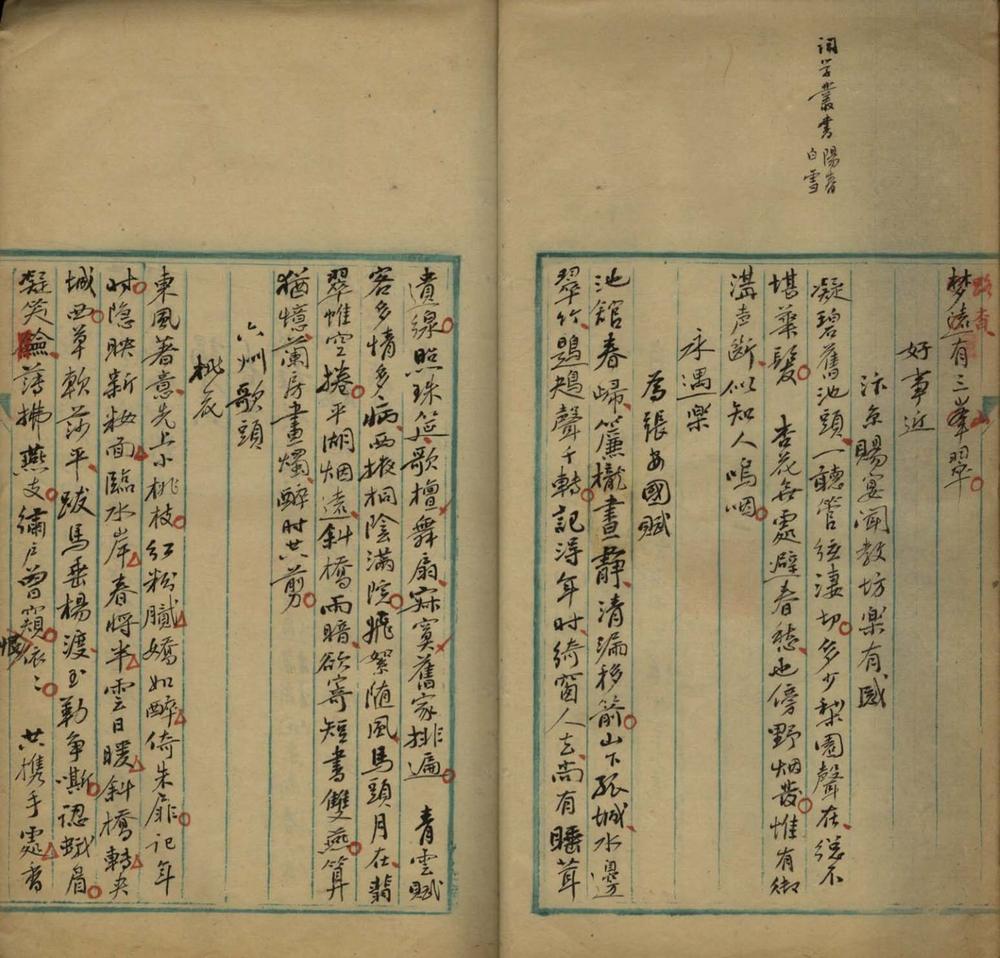 詞学叢書陽春
白雪
路杳山
梦遶有三峯翠
好事近
汴京賜宴聞教坊樂有感
凝碧舊池頭一聽管絃凄切多少梨園聲在總不
堪華髮　杏花無處避春愁也傍野烟發惟有御
溝声断似知人嗚咽
永遇樂
為張安國賦
池舘春歸簾櫳晝静清漏移箭山下孤城水邊
翠竹鶗鴂聲千轉記得年时綺窗人去尚有睡茸
遺線照珠筵歌檀舞扇寂寞舊家排遍　青雲賦
客多情多病西掖桐陰滿院飛絮随風馬頭月在翡
翠帷空捲平湖烟遠斜橋雨暗欲寄短書雙燕算
猶憶蘭房畫燭醉时共剪
六州歌頭
桃花
東風著意先上小桃枝红粉膩嬌如醉倚朱扉记年
时隐映新妝面臨水岸春将半雲日暖斜橋轉夹
城西草軟莎平跋馬垂楊渡玉勒争嘶認蛾眉
凝笑臉薄拂燕支繡户曾窺恨依〻　共携手處香